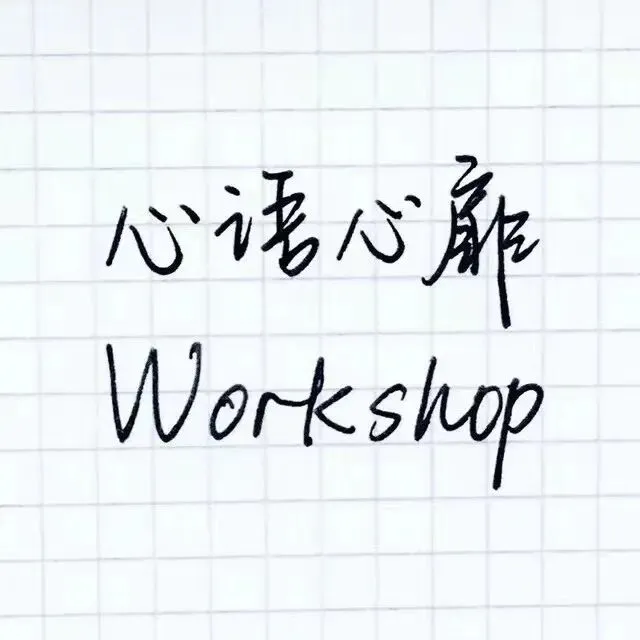 心语心扉
Workshop